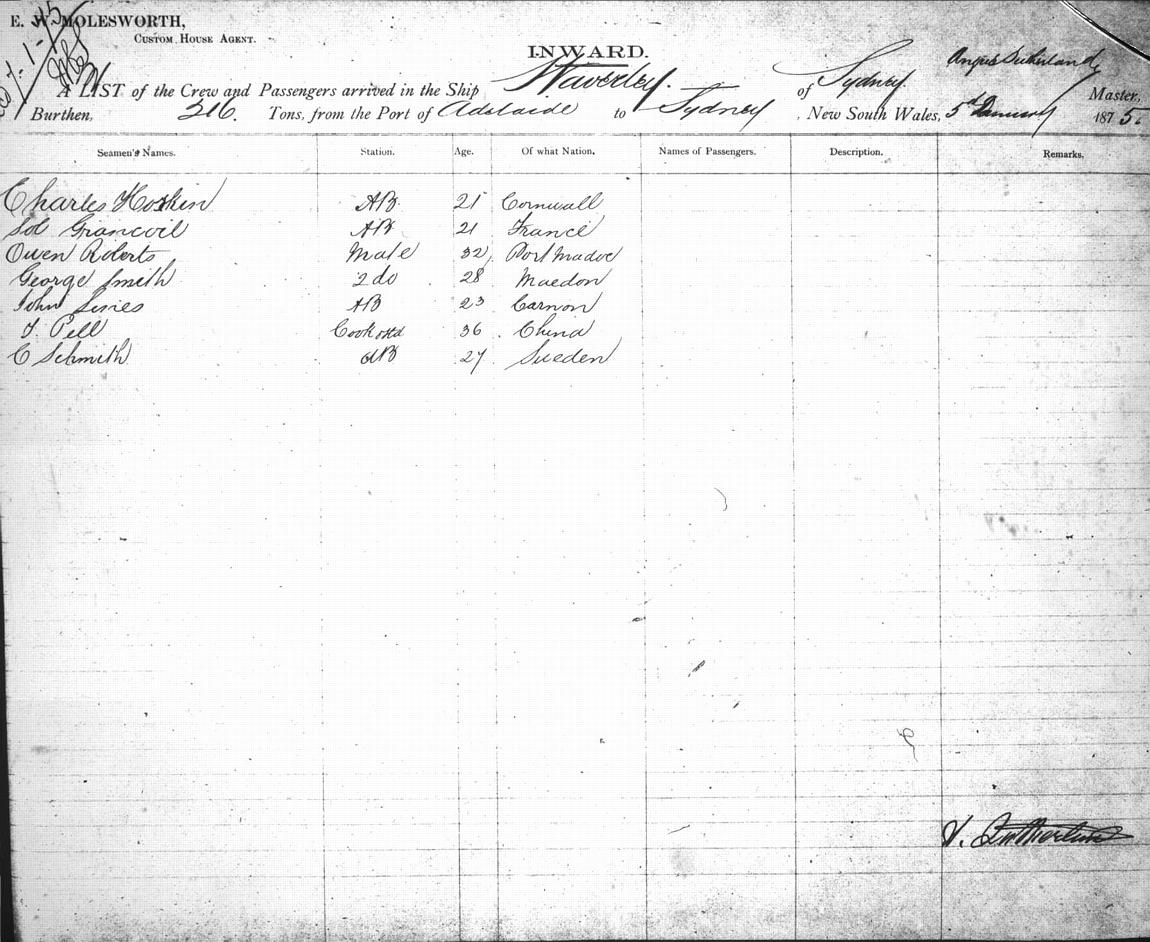 E. W. MOLESWORTH,
CUSTOM HOUSE AGENT.
INWARD.
A LIST of the Crew and Passengers arrived in the Ship Waverley. of Sydney. Angus Sutherland, Master,
Burthen, 216. Tons, from the Port of Adelaide to Sydney , New South Wales, 5th January 1875.
Seamen's Names. Station. Age. Of what Nation. Names of Passengers. Description. Remarks.
Charles Hoskin AB. 21 Cornwall
Sol AB 21 France
Owen Roberts Mate 32 Port Madoc
George Smith 2 do 28
John AB 23
J Pell Cook 36 China
C Schmith AB 27 Sweden